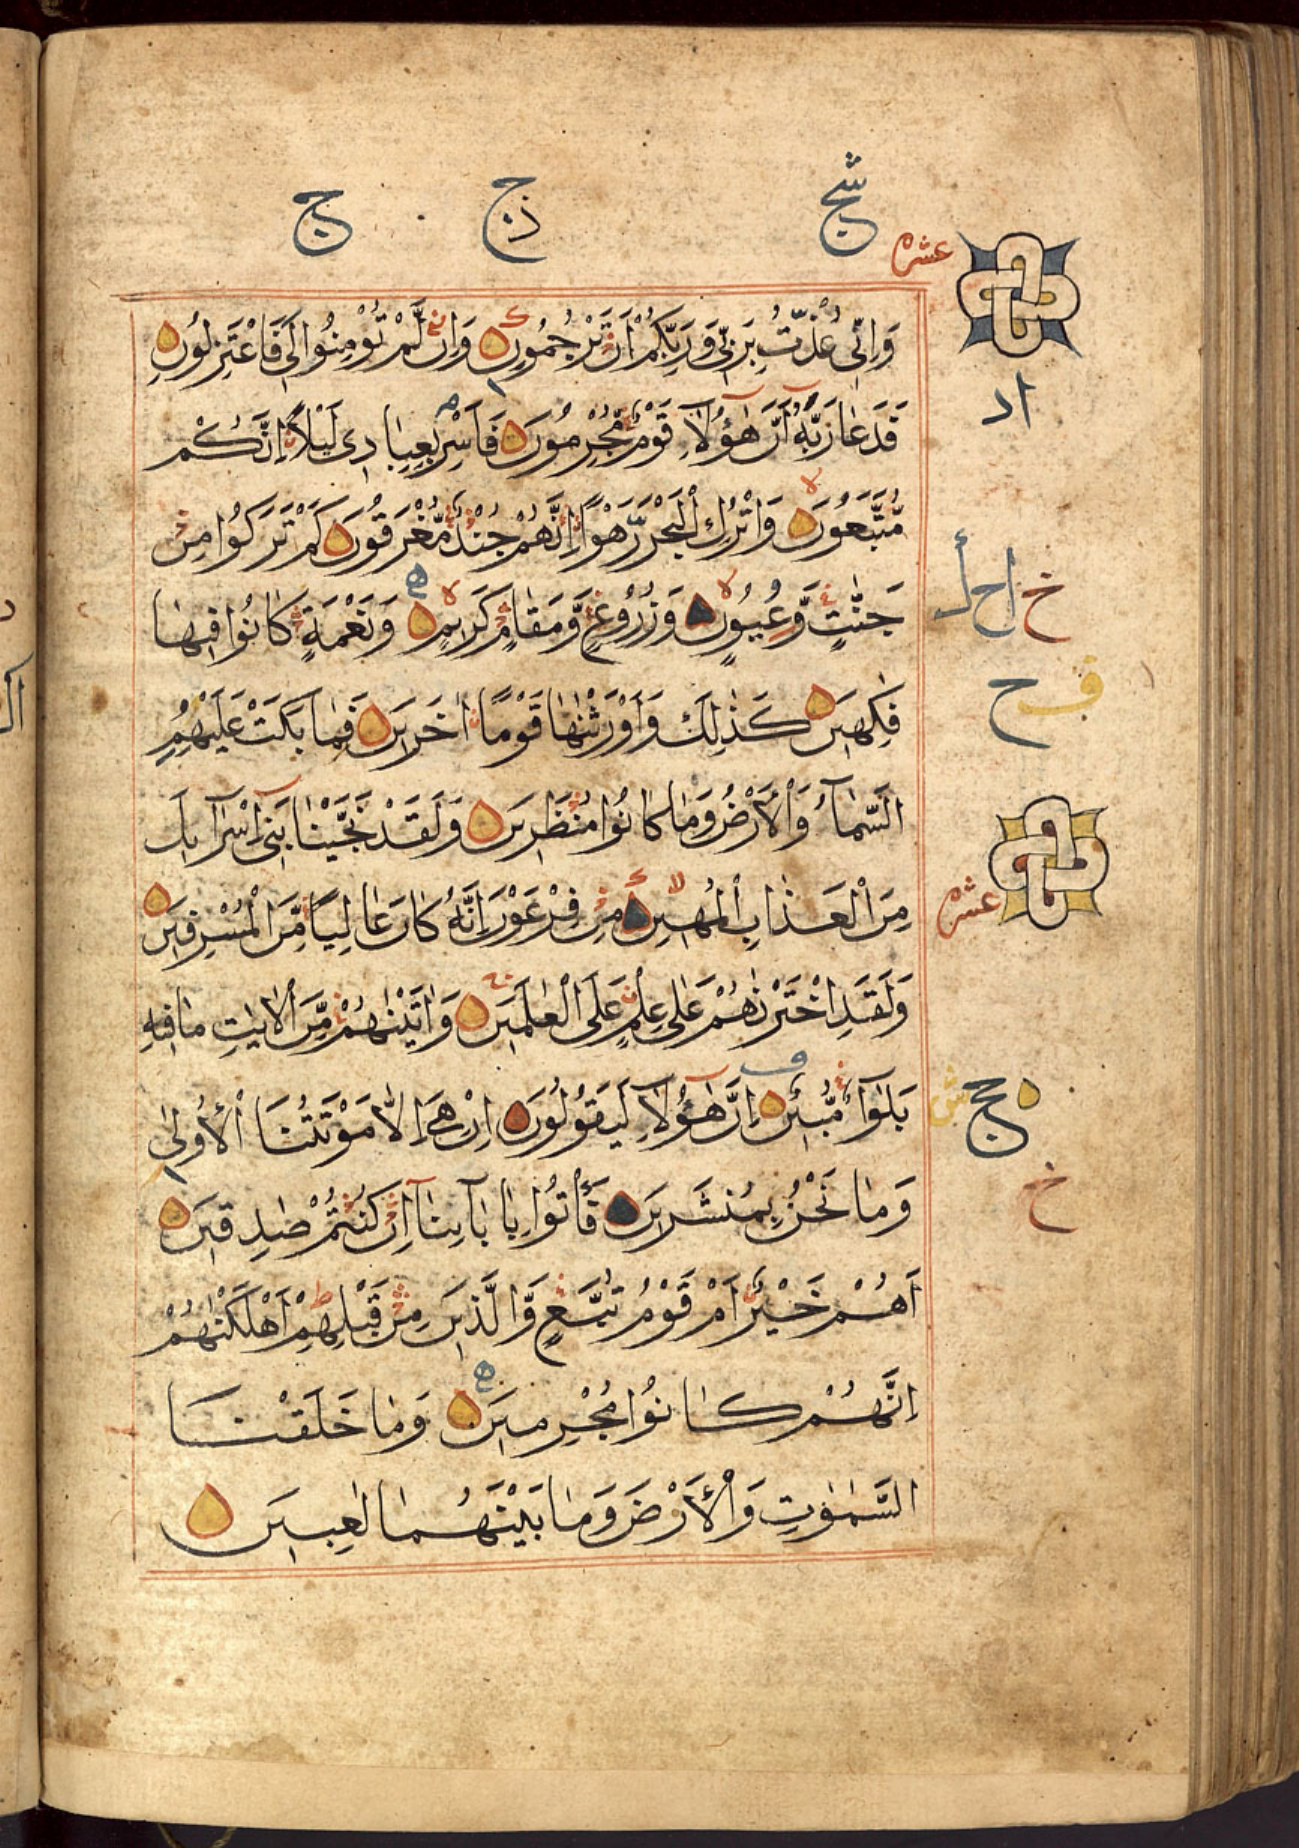 شج
ج ذ
ج
عشره
وَاِنِّى عُذْتُ بِرَبِّى وَرَبِّكُمْ اَنْ تَرْجُمُونِ وَاِنْ لَّمْ تُؤْمِنُوا لِى فَاعْتَزِلُونِ
فَدَعَا رَبَّهُ اَنَّ هٰٓؤُلَآءِ قَوْمٌ مُجْرِمُونَ فَاَسْرِ بِعِبَادِى لَيْلًا اِنَّكُمْ
مُّتَّبَعُونَ وَاتْرُكِ الْبَحْرَ رَهْوًا اِنَّهُمْ جُنْدٌ مُّغْرَقُونَ كَمْ تَرَكُوا مِنْ
جَنّٰتٍ وَّعُيُونٍ وَزُرُوعٍ وَّمَقَامٍ كَرِيمٍ وَنَعْمَةٍ كَانُوا فِيهَا
فٰكِهِينَ كَذٰلِكَ وَاَوْرَثْنٰهَا قَوْمًا اٰخَرِينَ فَمَا بَكَتْ عَلَيْهِمُ
السَّمَآءُ وَالْاَرْضُ وَمَا كَانُوا مُنْظَرِينَ وَلَقَدْ نَجَّيْنَا بَنِىٓ اِسْرَآئِلَ
مِنَ الْعَذَابِ الْمُهِينِ مِنْ فِرْعَوْنَ اِنَّهُ كَانَ عَالِيًا مِّنَ الْمُسْرِفِينَ
عشره
وَلَقَدِ اخْتَرْنٰهُمْ عَلٰى عِلْمٍ عَلَى الْعٰلَمِينَ وَاٰتَيْنٰهُمْ مِّنَ الْاٰيٰتِ مَا فِيهِ
بَلٰٓؤٌا مُّبِينٌ اِنَّ هٰٓؤُلَآءِ لَيَقُولُونَ اِنْ هِىَ اِلَّا مَوْتَتُنَا الْاُولٰى
وَمَا نَحْنُ بِمُنْشَرِينَ فَأْتُوا بِاٰبَآئِنَآ اِنْ كُنْتُمْ صٰدِقِينَ
خ
اَهُمْ خَيْرٌ اَمْ قَوْمُ تُبَّعٍ وَّالَّذِينَ مِنْ قَبْلِهِمْ اَهْلَكْنٰهُمْ
اِنَّهُمْ كَانُوا مُجْرِمِينَ وَمَا خَلَقْنَا
السَّمٰوٰتِ وَالْاَرْضَ وَمَا بَيْنَهُمَا لٰعِبِينَ